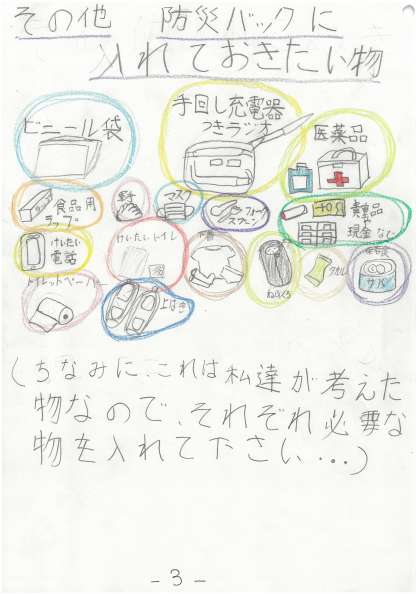 その他 防災バックに
入れておきたい物
ビニール袋
手回し充電器
つきラジオ
医薬品
食品用
ラップ
軍手
マスク
フォーク
スプーン
貴重品
や
現金など
けいたい
電話
けいたいトイレ
下着
ねぶくろ
タオル
保存食
トイレットペーパー
上ばき
(ちなみに、これは私達が考えた
物なので、それぞれ必要な
物を入れて下さい…)
-3-